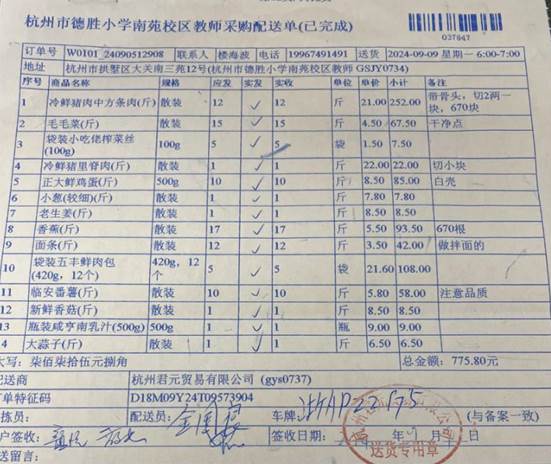 杭州市德胜小学南苑校区教师采购配送单(已完成)
027847
订单号 W0101_24090512908 联系人 楼海波 电话 19967491491 送货 2024-09-09 星期一 6:00-7:00
地址 杭州市拱墅区大关南三苑12号(杭州市德胜小学南苑校区教师 GSJY0734)
序号 商品名称 规格 应发 实发 实收 单位 单价 小计 备注
1 冷鲜猪肉中方条肉(斤) 散装 12 ✓ 12 斤 21.00 252.00 带骨头，切2两一块，670块
2 毛毛菜(斤) 散装 15 ✓ 15 斤 4.50 67.50 干净点
3 袋装小吃佬榨菜丝(100g) 100g 5 ✓ 5 袋 1.50 7.50
4 冷鲜猪里脊肉(斤) 散装 1 ✓ 1 斤 22.00 22.00 切小块
5 正大鲜鸡蛋(斤) 500g 10 ✓ 10 斤 8.50 85.00 白壳
6 小葱(较细)(斤) 散装 1 ✓ 1 斤 7.80 7.80
7 老生姜(斤) 散装 1 ✓ 1 斤 8.50 8.50
8 香蕉(斤) 散装 17 ✓ 17 斤 5.50 93.50 670根
9 面条(斤) 散装 12 ✓ 12 斤 3.50 42.00 做拌面的
10 袋装五丰鲜肉包(420g，12个) 420g，12个 5 ✓ 5 袋 21.60 108.00
11 临安番薯(斤) 散装 10 ✓ 10 斤 5.80 58.00 注意品质
12 新鲜香菇(斤) 散装 1 ✓ 1 斤 8.50 8.50
13 瓶装咸亨南乳汁(500g) 500g 1 ✓ 1 瓶 9.00 9.00
4 大蒜子(斤) 散装 1 ✓ 1 斤 6.50 6.50
大写：柒佰柒拾伍元捌角 总金额：775.80元
配送商 杭州君元贸易有限公司 (gys0737)
订单特征码 D18M09Y24T09573904
拣员： 配送员： 车牌： (与备案一致)
户签收： 签收日期： 年 月 日
送货专用章
送留言：